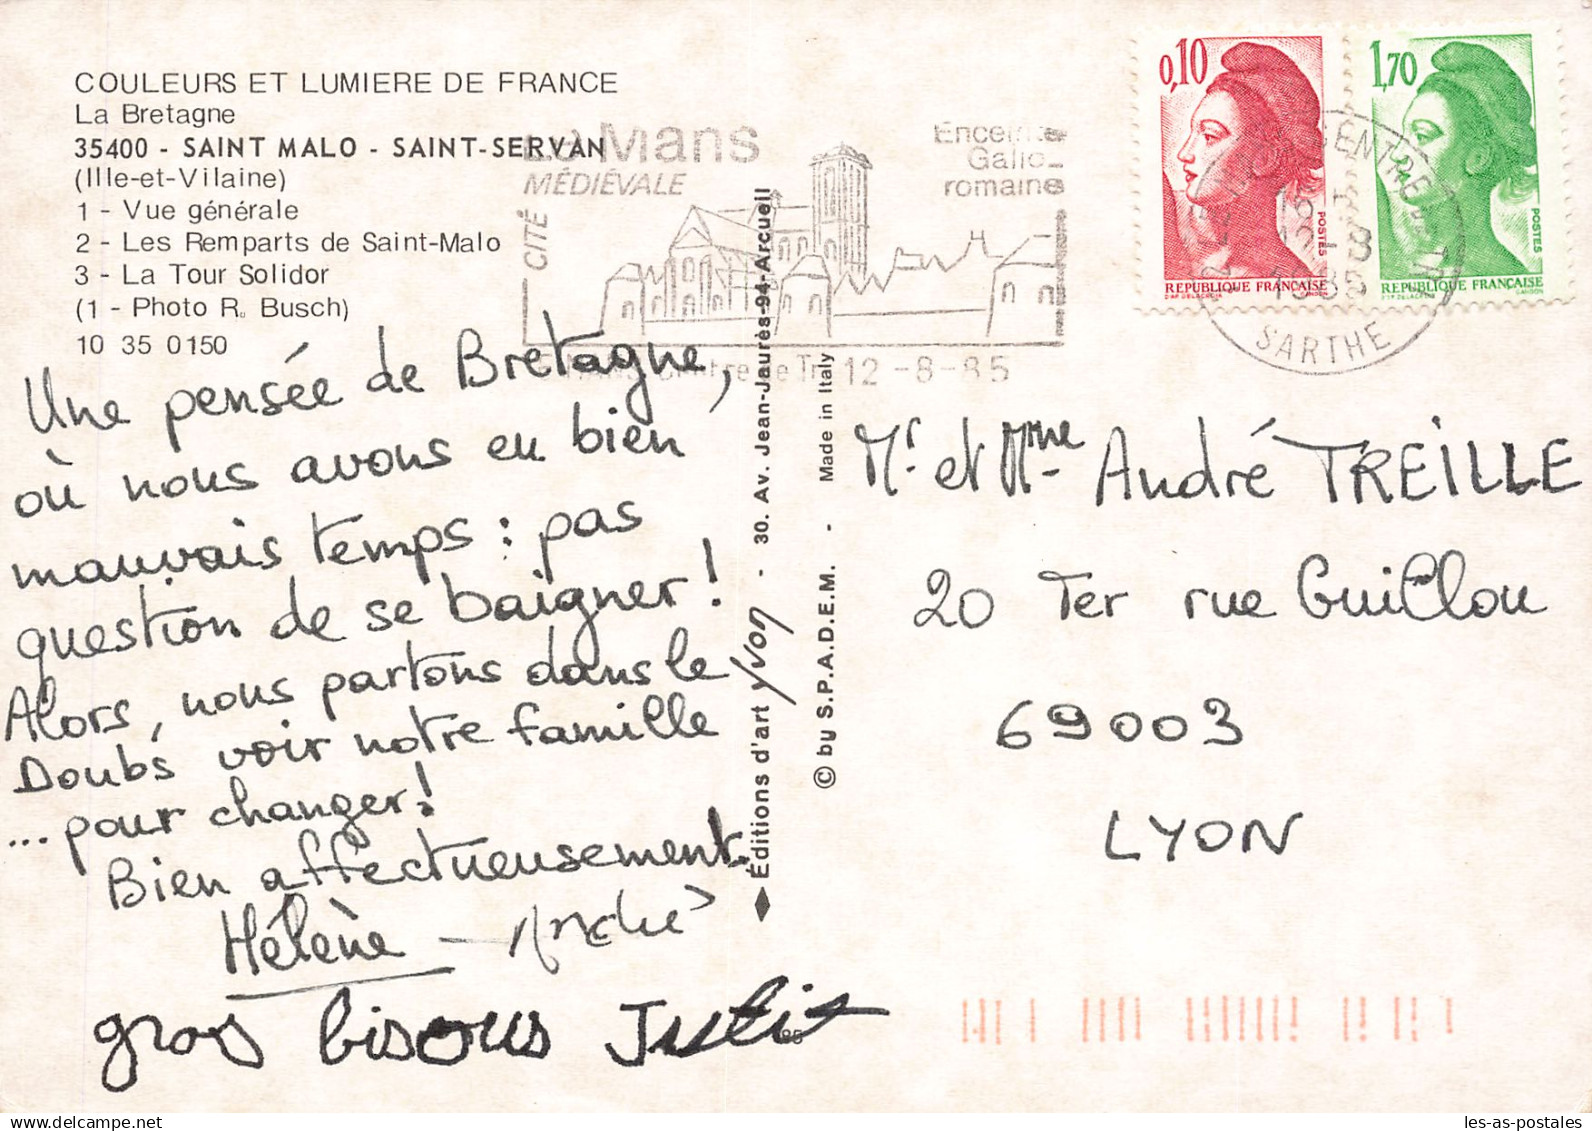 COULEURS ET LUMIERE DE FRANCE
La Bretagne
35400 - SAINT MALO - SAINT-SERVAN
(Ille-et-Vilaine)
1 - Vue générale
2 - Les Remparts de Saint-Malo
3 - La Tour Solidor
(1 - Photo R. Busch)
10 35 0150
Le Mans
CITÉ MÉDIÉVALE
Enceinte
Gallo-
romaine
12-8-85
0,10
POSTES
REPUBLIQUE FRANÇAISE
1,70
POSTES
REPUBLIQUE FRANÇAISE
12-8
1985
SARTHE
Une pensée de Bretagne,
où nous avons eu bien
mauvais temps : pas
question de se baigner !
Alors, nous partons dans le
Doubs voir notre famille
... pour changer !
Bien affectueusement.
Hélène - André
gros bisous Justin
Éditions d'art Yvon - 30. Av. Jean-Jaurès-94-Arcueil
© by S.P.A.D.E.M. - Made in Italy
Mr. et Mme André TREILLE
20 Ter rue Guilloux
69003
LYON
les-as-postales